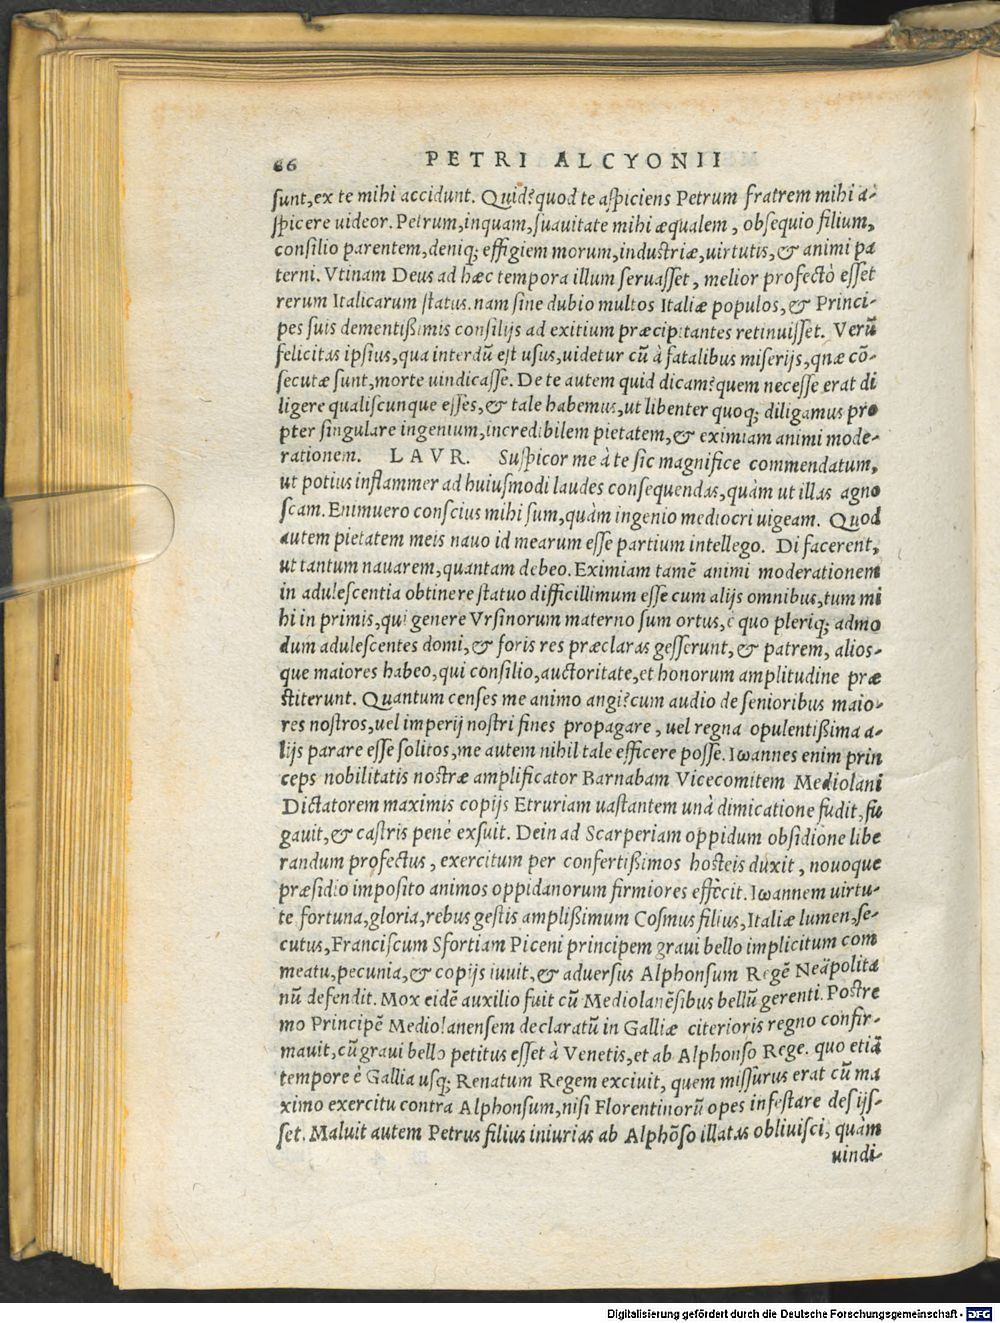 86 PETRI ALCYONII
sunt, ex te mihi accidunt. Quid? quod te aspiciens Petrum fratrem mihi a-
spicere uideor. Petrum, inquam, suauitate mihi æqualem, obsequio filium,
consilio parentem, deniq; effigiem morum, industriæ, uirtutis, & animi pa
terni. Vtinam Deus ad hæc tempora illum seruasset, melior profectò esset
rerum Italicarum status. nam sine dubio multos Italiæ populos, & Princi-
pes suis dementißimis consilijs ad exitium præcipitantes retinuisset. Verũ
felicitas ipsius, qua interdũ est usus, uidetur cũ à fatalibus miserijs, quæ cõ-
secutæ sunt, morte uindicasse. De te autem quid dicam? quem necesse erat di
ligere qualiscunque esses, & tale habemus, ut libenter quoq; diligamus pro
pter singulare ingenium, incredibilem pietatem, & eximiam animi mode-
rationem. LAVR. Suspicor me à te sic magnifice commendatum,
ut potius inflammer ad huiusmodi laudes consequendas, quàm ut illas agno
scam. Enimuero conscius mihi sum, quàm ingenio mediocri uigeam. Quod
autem pietatem meis nauo id mearum esse partium intellego. Di facerent,
ut tantum nauarem, quantam debeo. Eximiam tamẽ animi moderationem
in adulescentia obtinere statuo difficillimum esse cum alijs omnibus, tum mi
hi in primis, qui genere Vrsinorum materno sum ortus, è quo pleriq; admo
dum adulescentes domi, & foris res præclaras gesserunt, & patrem, alios-
que maiores habeo, qui consilio, auctoritate, et honorum amplitudine præ
stiterunt. Quantum censes me animo angi? cum audio de senioribus maio-
res nostros, uel imperij nostri fines propagare, uel regna opulentißima a-
lijs parare esse solitos, me autem nihil tale efficere posse. Iωannes enim prin
ceps nobilitatis nostræ amplificator Barnabam Vicecomitem Mediolani
Dictatorem maximis copijs Etruriam uastantem unà dimicatione fudit, fu
gauit, & castris penè exuit. Dein ad Scarperiam oppidum obsidione libe
randum profectus, exercitum per confertißimos hosteis duxit, nouoque
præsidio imposito animos oppidanorum firmiores effècit. Iωannem uirtu-
te fortuna, gloria, rebus gestis amplißimum Cosmus filius, Italiæ lumen, se-
cutus, Franciscum Sfortiam Piceni principem graui bello implicitum com
meatu, pecunia, & copijs iuuit, & aduersus Alphonsum Regẽ Neapolita
nũ defendit. Mox eidẽ auxilio fuit cũ Mediolanẽsibus bellũ gerenti. Postre
mo Principẽ Mediolanensem declaratũ in Galliæ citerioris regno confir-
mauit, cũ graui bello petitus esset à Venetis, et ab Alphonso Rege. quo etiã
tempore è Gallia usq; Renatum Regem exciuit, quem missurus erat cũ ma
ximo exercitu contra Alphonsum, nisi Florentinorũ opes infestare desijs-
set. Maluit autem Petrus filius iniurias ab Alphõso illatas obliuisci, quàm
uindi-
Digitalisierung gefördert durch die Deutsche Forschungsgemeinschaft - DFG